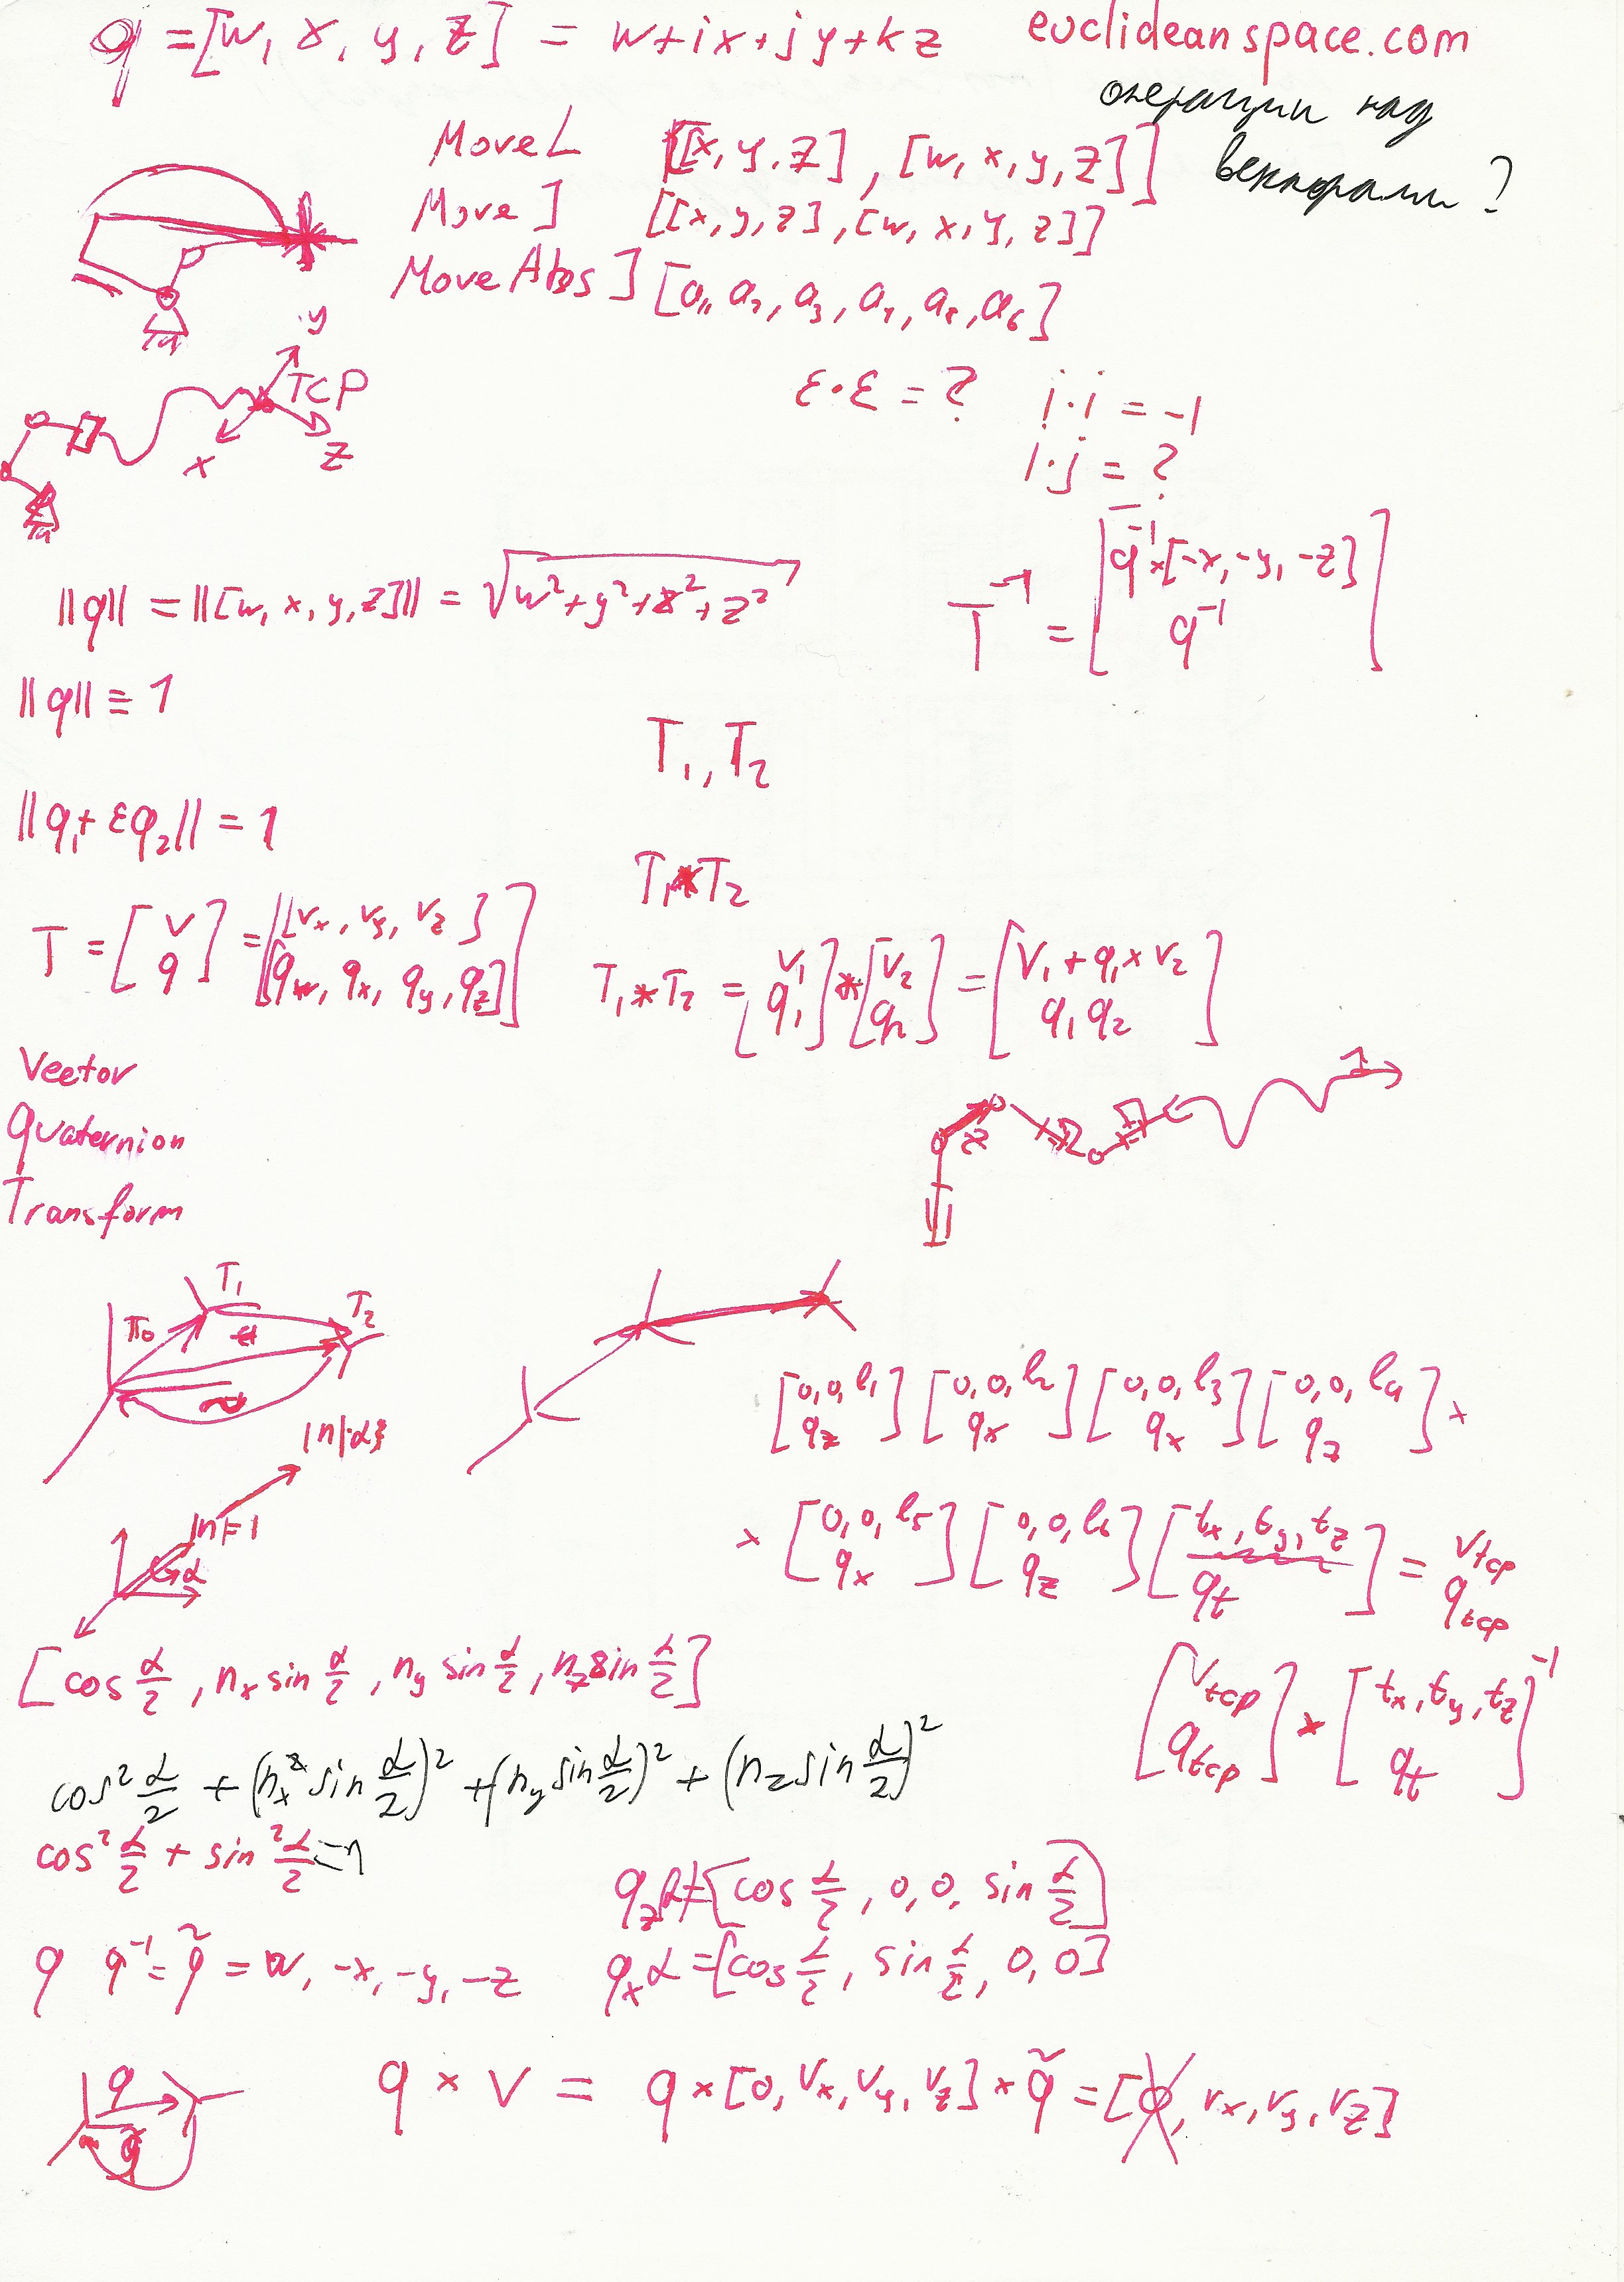 q = [w, x, y, z] = w+ix+jy+kz
euclideanspace.com
операции над
векторами ?
MoveL [[x, y, z], [w, x, y, z]]
MoveJ [[x, y, z], [w, x, y, z]]
MoveAbsJ [a₁, a₂, a₃, a₄, a₅, a₆]
y
TCP
x
z
ε·ε = ?
i·i = -1
i·j = ?
||q|| = ||[w, x, y, z]|| = √(w²+y²+x²+z²)
T⁻¹ = [q⁻¹×[-x, -y, -z]
q⁻¹]
||q|| ≡ 1
T₁, T₂
||q₁+εq₂|| = 1
T₁*T₂
T = [v q] = [[vx, vy, vz] [qw, qx, qy, qz]]
T₁*T₂ = [v₁ q₁]*[v₂ q₂] = [v₁ + q₁×v₂ q₁q₂]
Vector
Quaternion
Transform
T₁
T₀
T₂
[0,0,l₁ qz] [0,0,l₂ qx] [0,0,l₃ qx] [0,0,l₄ qz] ×
|n|·α
|n|=1
α
× [0,0,l₅ qx] [0,0,l₆ qz] [tx, ty, tz qt] = vtcp qtcp
[cos α/2, nx sin α/2, ny sin α/2, nz sin α/2]
[vtcp qtcp] × [tx, ty, tz qt]⁻¹
cos² α/2 + (nx sin α/2)² + (ny sin α/2)² + (nz sin α/2)²
cos² α/2 + sin² α/2 = 1
qzα = [cos α/2, 0, 0, sin α/2]
q q⁻¹ = q̃ = w, -x, -y, -z
qxα = [cos α/2, sin α/2, 0, 0]
q
q̃
q × v = q × [0, vx, vy, vz] × q̃ = [0, vx, vy, vz]